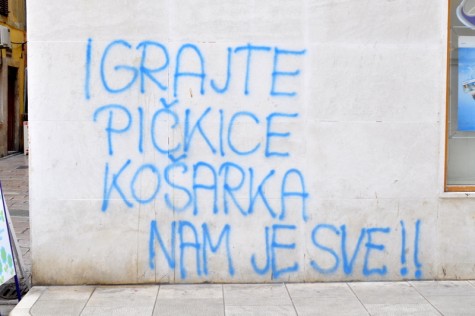 IGRAJTE
PIČKICE
KOŠARKA
NAM JE SVE!!